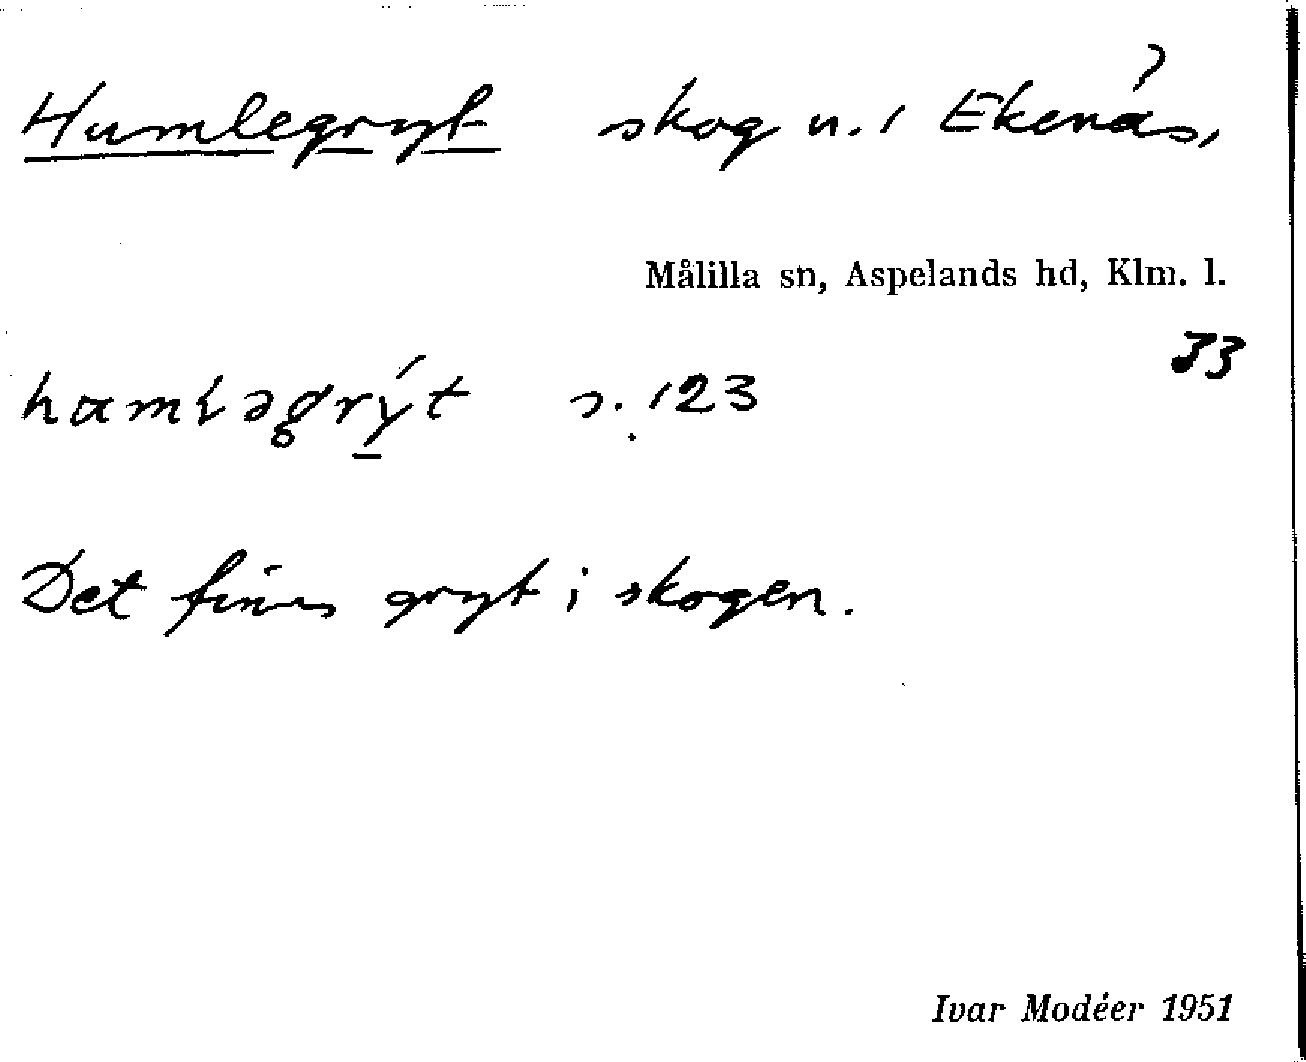 Humlegryt skog u. 1 Ekenäs,
Målilla sn, Aspelands hd, Klm. l.
33
s. 123
Det finns gryt i skogen.
Ivar Modéer 1951